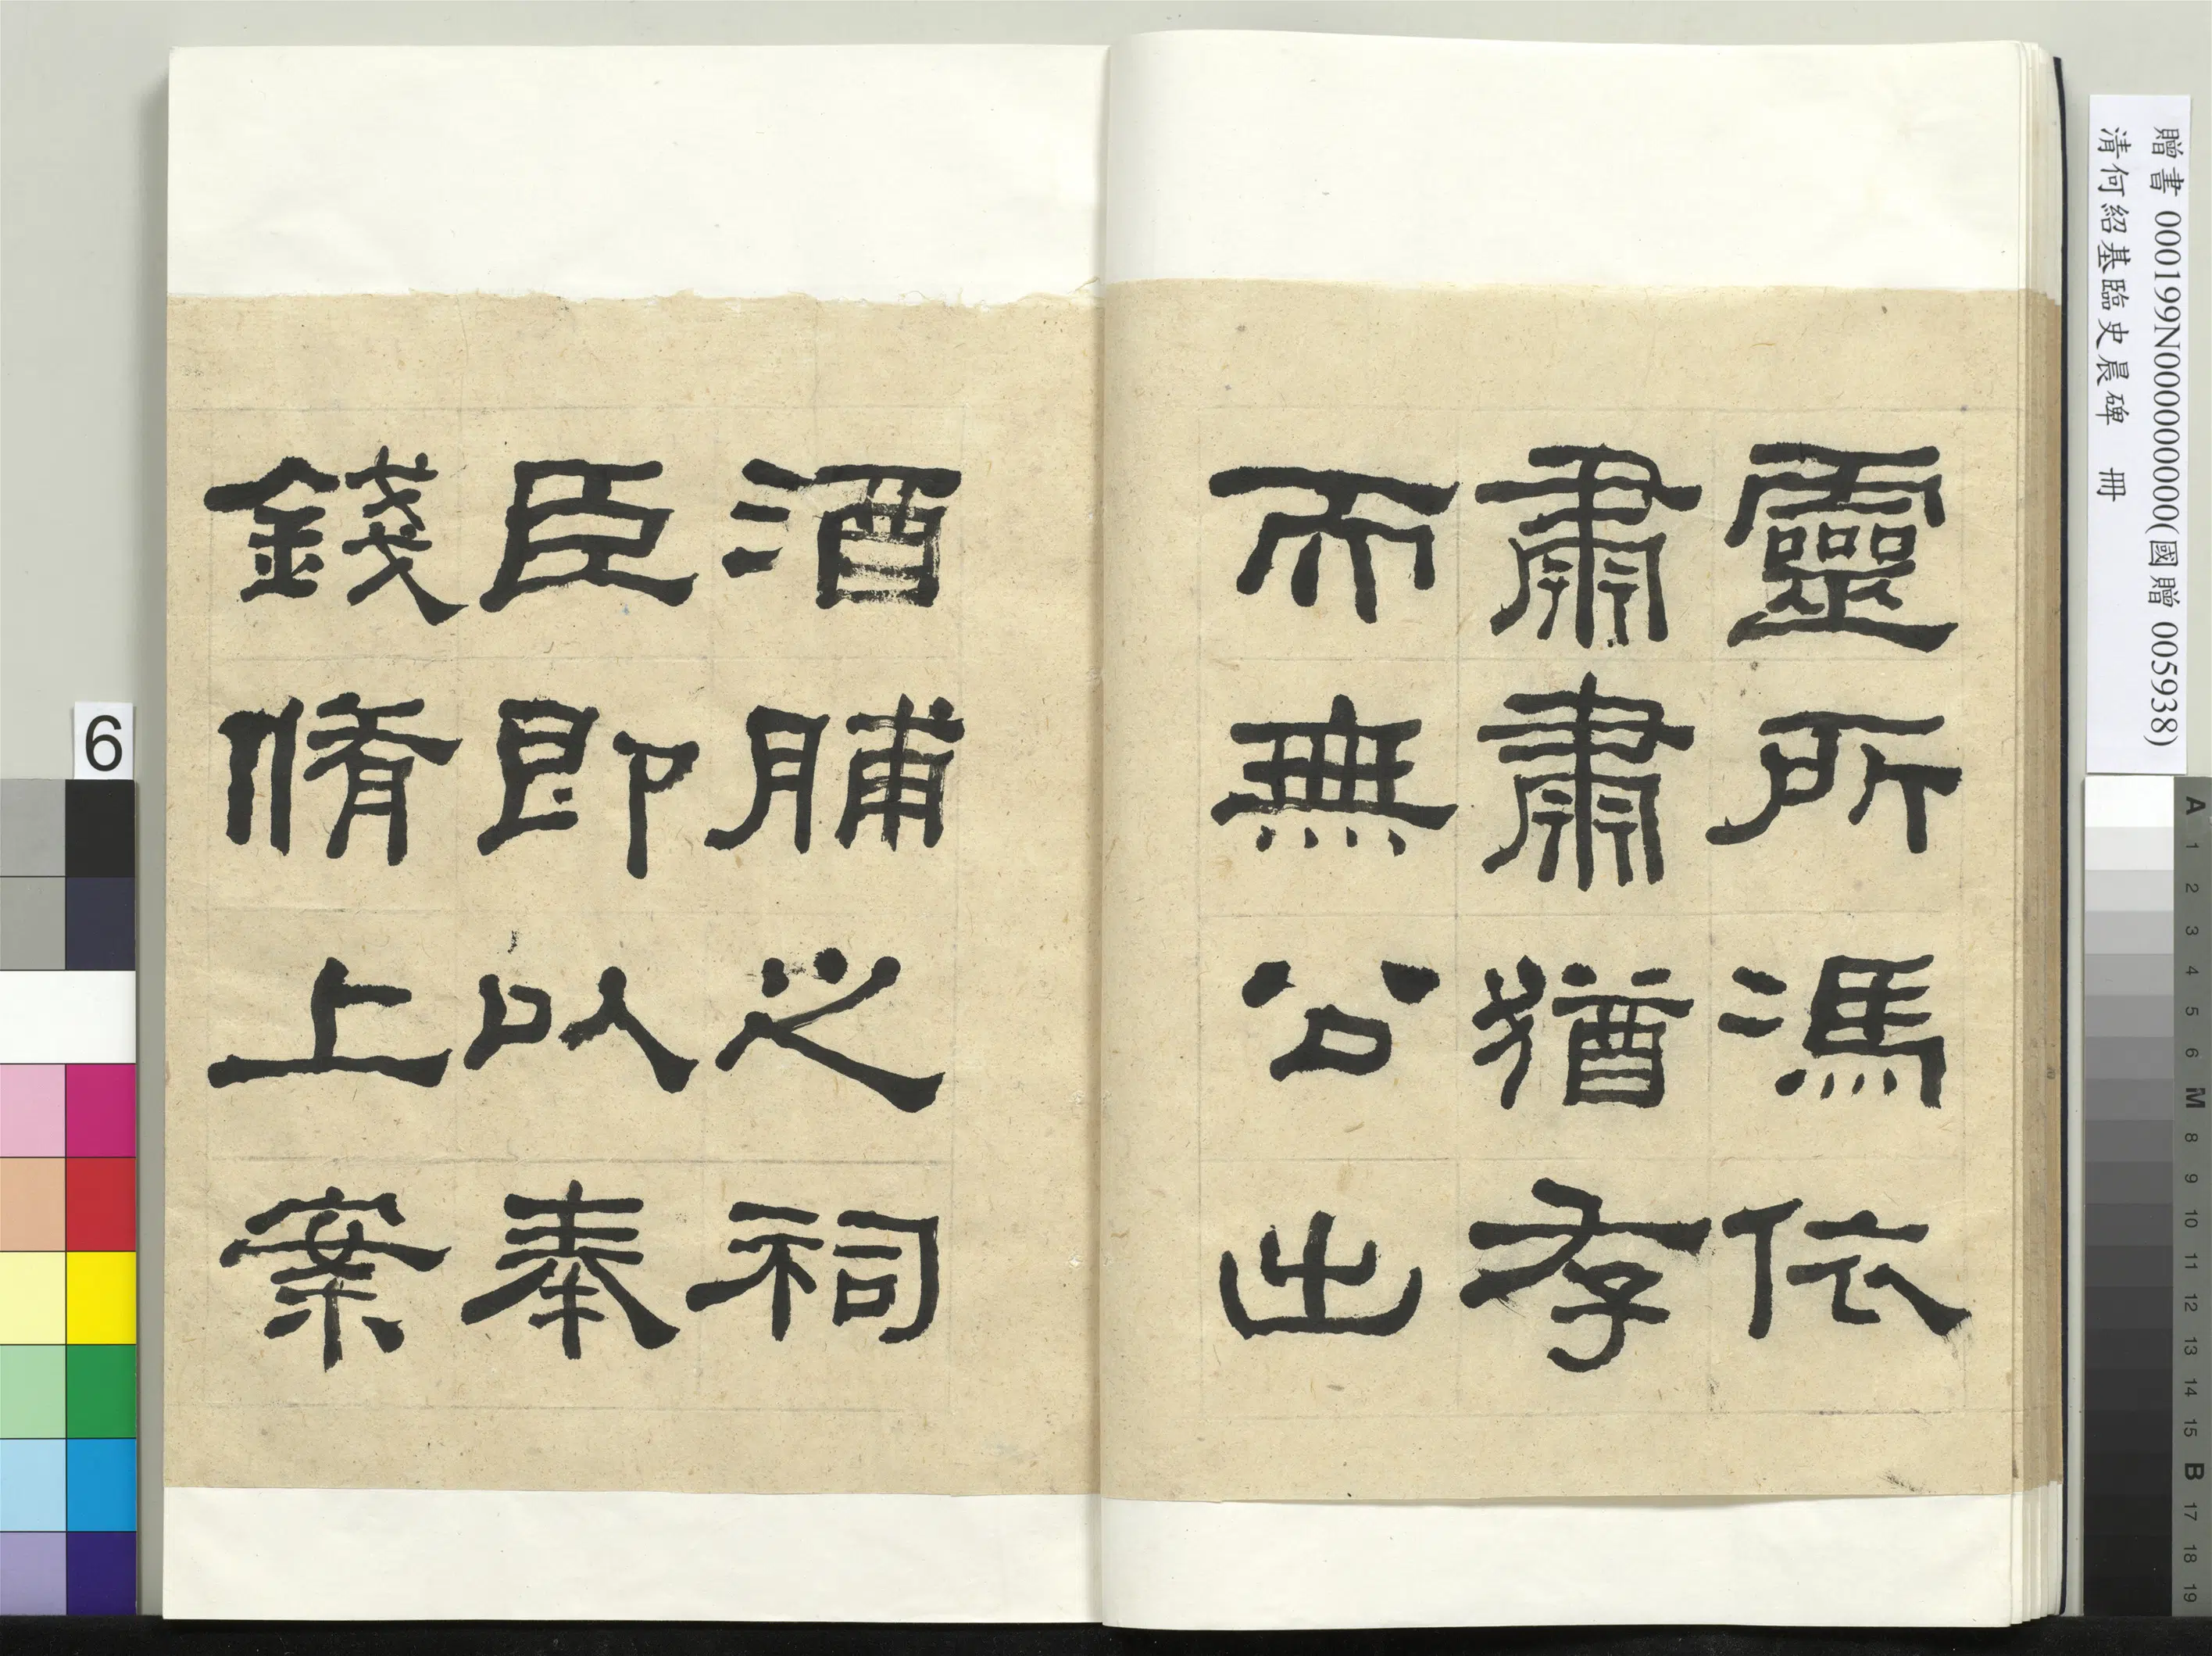 靈所馮依
肅肅猶存
而無公出
酒脯之祠
臣即以奉
錢脩上案
贈書 000199N000000000(國贈 005938)
清何紹基臨史晨碑 冊
6
A 1 2 3 4 5 6 M 8 9 10 11 12 13 14 15 B 17 18 19